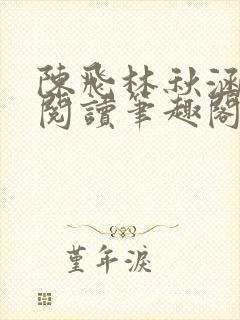 陳飛林秋涵
閱讀筆趣閣
堇年淚